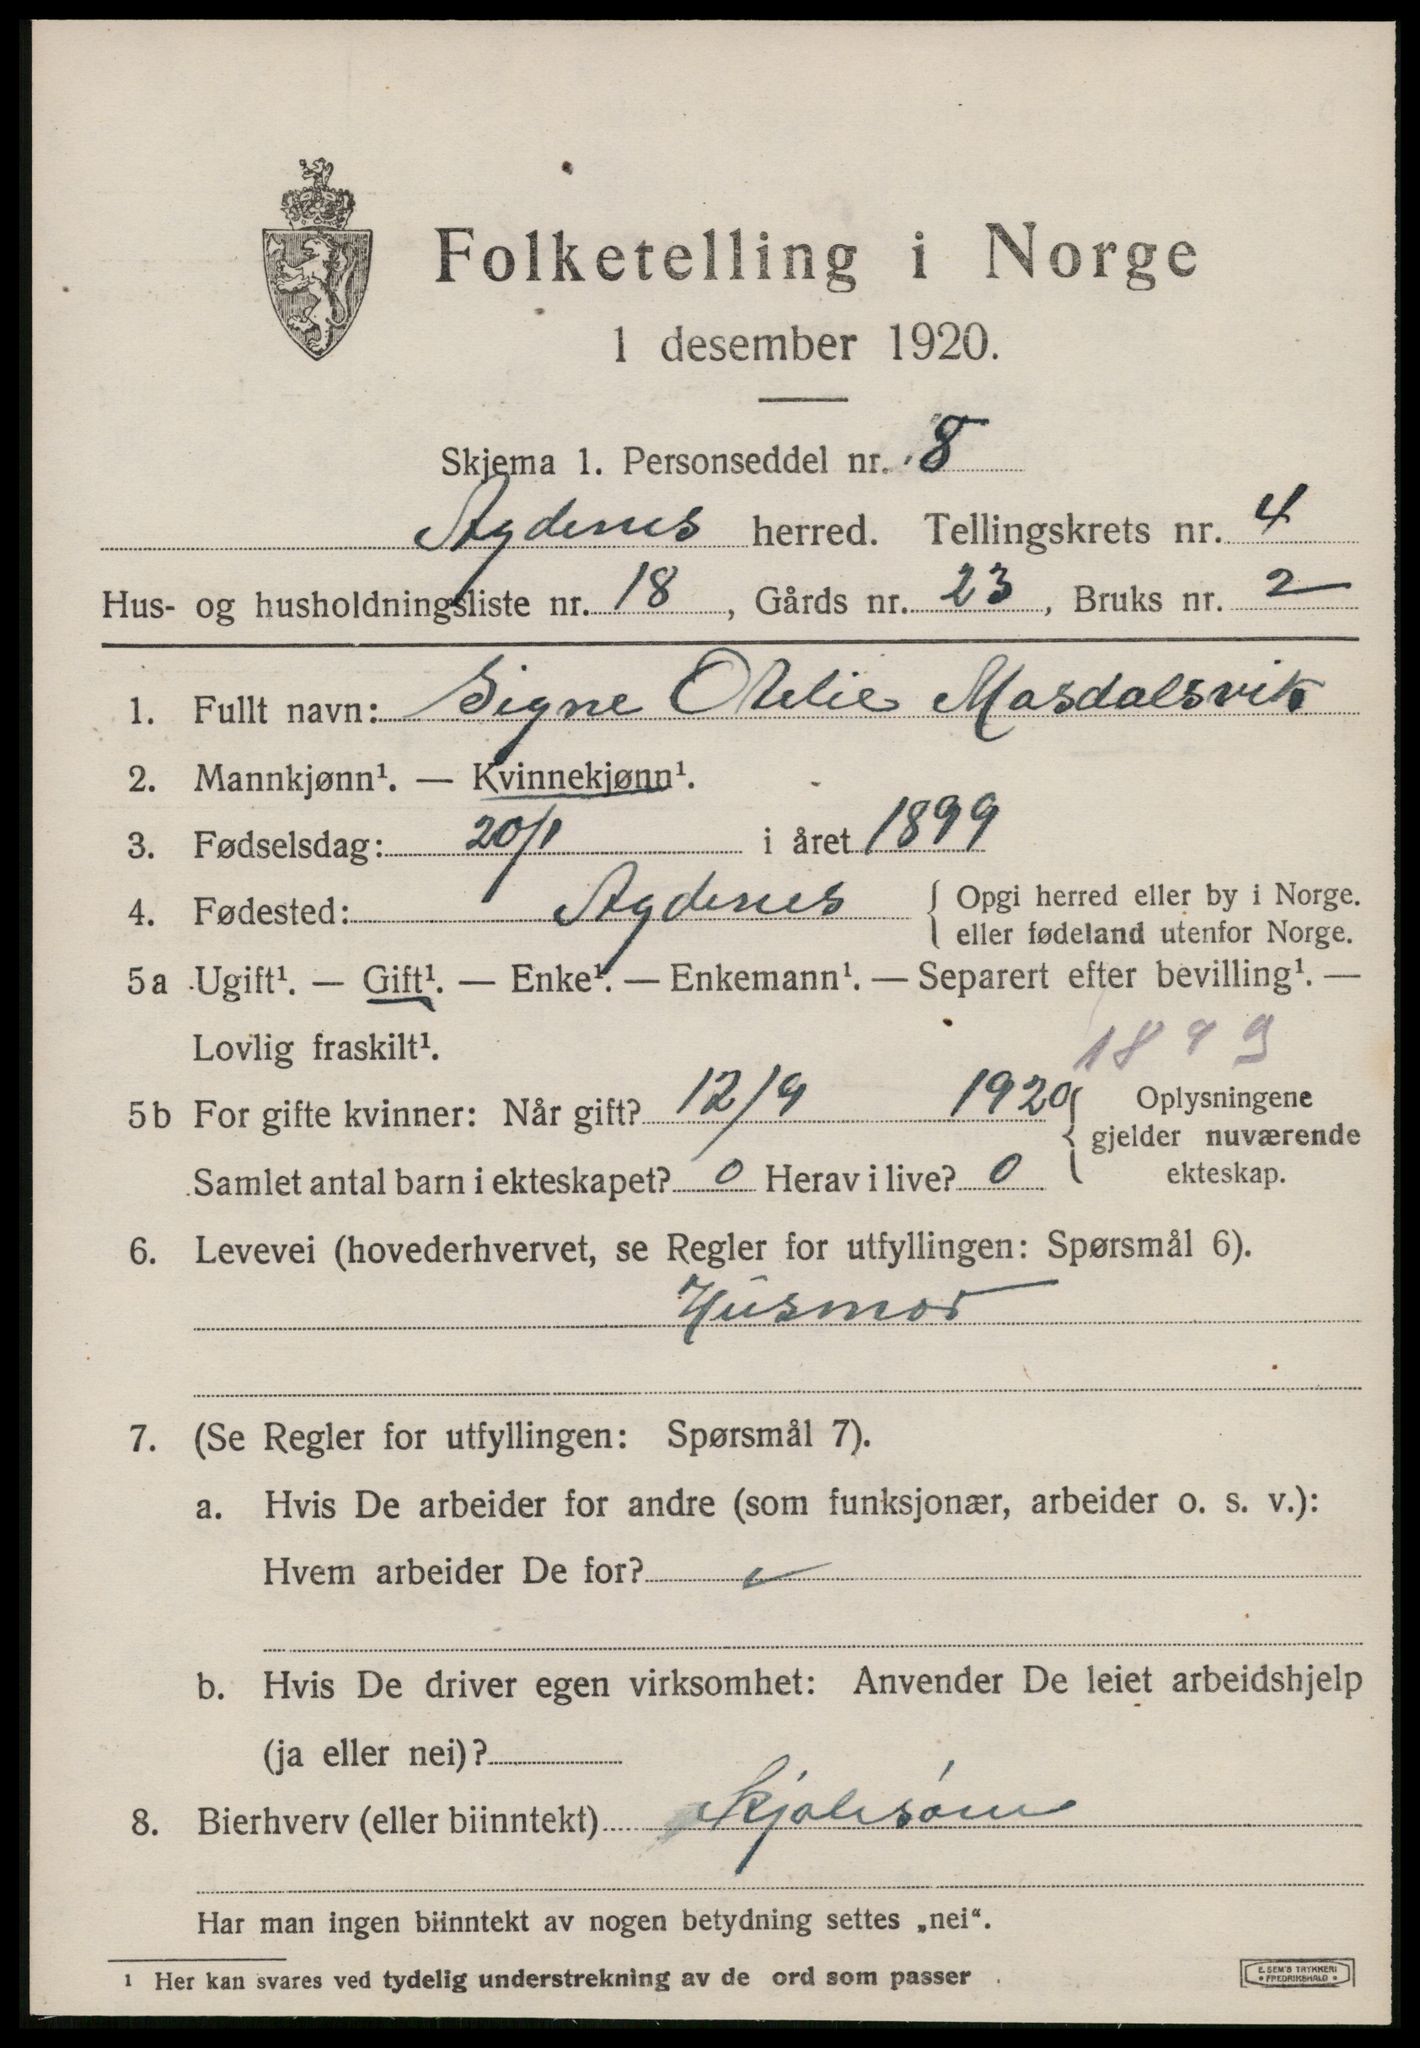 Folketelling i Norge
1 desember 1920.
Skjema 1. Personseddel nr. 8
Agdenes herred. Tellingskrets nr. 4
Hus- og husholdningsliste nr. 18, Gårds nr. 23, Bruks nr. 2
1. Fullt navn: Signe Otelie Masdalsvik
2. Mannkjønn¹. — Kvinnekjønn¹.
3. Fødselsdag: 20/1 i året 1899
4. Fødested: Agdenes { Opgi herred eller by i Norge.
eller fødeland utenfor Norge.
5a Ugift¹. — Gift¹. — Enke¹. — Enkemann¹. — Separert efter bevilling¹. —
Lovlig fraskilt¹.
1899
5b For gifte kvinner: Når gift? 12/9 1920 { Oplysningene
gjelder nuværende
Samlet antal barn i ekteskapet? 0 Herav i live? 0 ekteskap.
6. Levevei (hovederhvervet, se Regler for utfyllingen: Spørsmål 6).
Husmor
7. (Se Regler for utfyllingen: Spørsmål 7).
a. Hvis De arbeider for andre (som funksjonær, arbeider o. s. v.):
Hvem arbeider De for? ✓
b. Hvis De driver egen virksomhet: Anvender De leiet arbeidshjelp
(ja eller nei)?
8. Bierhverv (eller biinntekt) Kjolesøm
Har man ingen biinntekt av nogen betydning settes „nei“.
¹ Her kan svares ved tydelig understrekning av de ord som passer
E. SEM'S TRYKKERI
• FREDRIKSHALD •